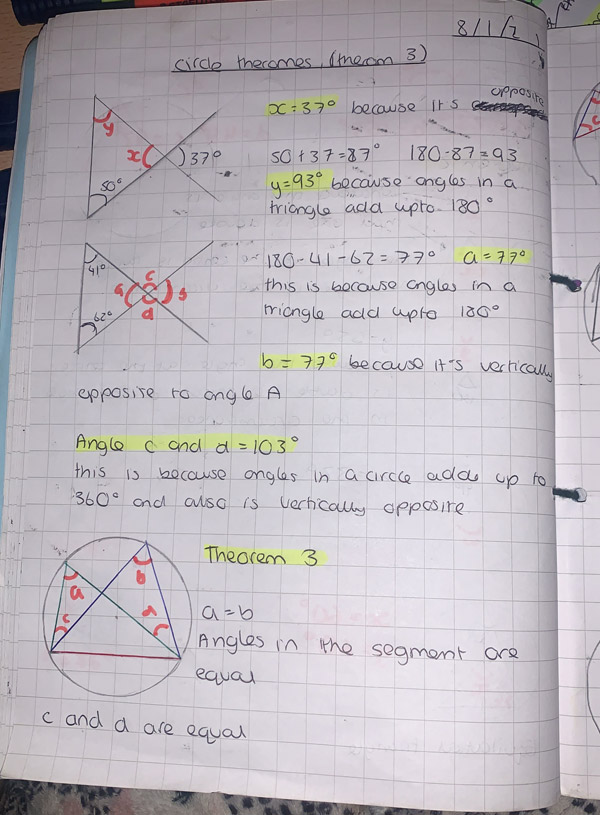 8/1/21
circle theromes (therom 3)
y
x
37°
50°
x = 37° because it's opposite
50 + 37 = 87° 180 - 87 = 93
y = 93° because angles in a
triangle add upto 180°
41°
c
a
b
d
62°
180 - 41 - 62 = 77° a = 77°
this is because angles in a
triangle add upto 180°
b = 77° because it's vertically
opposite to angle A
Angle c and d = 103°
this is because angles in a circle adds up to
360° and also is vertically opposite
Theorem 3
a
b
c
d
a = b
Angles in the segment are
equal
c and d are equal